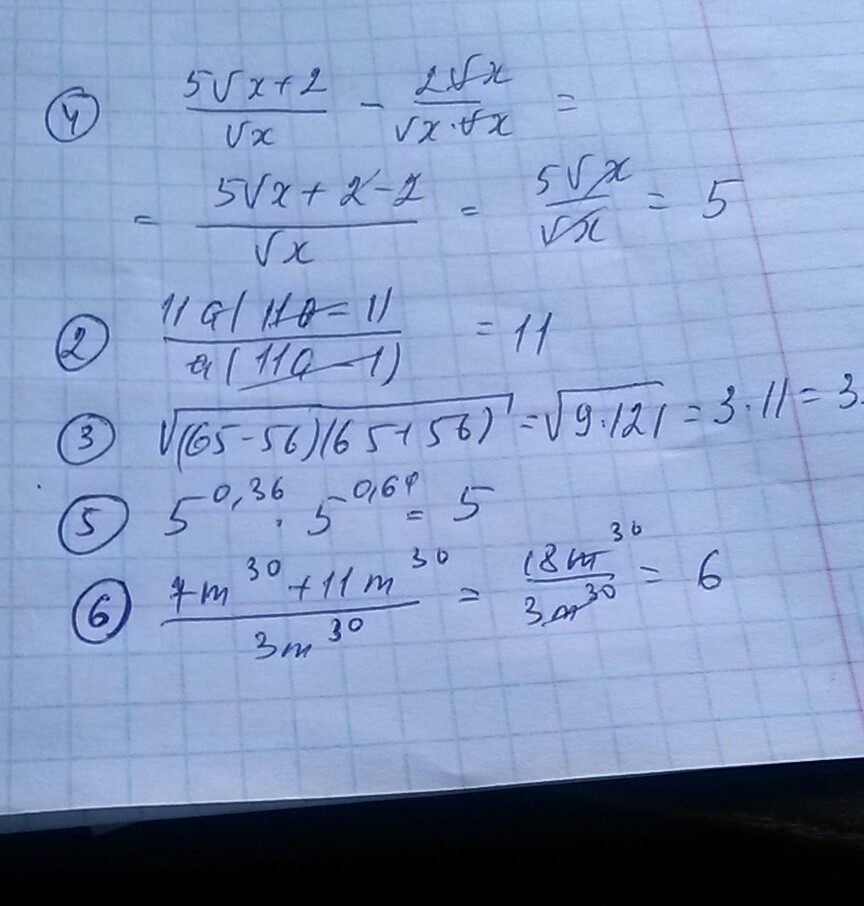 ④ (5√x+2)/√x - 2√x/(√x·√x) =
= (5√x+2-2)/√x = 5√x/√x = 5
② 11a(11a-1)/a(11a-1) = 11
③ √(65-56)(65+56) = √9·121 = 3·11 = 3
⑤ 5^0,36 · 5^0,64 = 5
⑥ (7m^30+11m^30)/3m^30 = 18m^30/3m^30 = 6